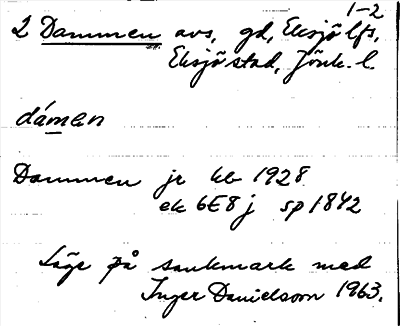 1-2
2 Dammen avs, gd, Eksjö lfs,
Eksjö stad, Jönk. l.
dámen
Dammen jr kb 1928
ek 6E8j sp 1842
Läge på sankmark med
Inger Danielsson 1963.